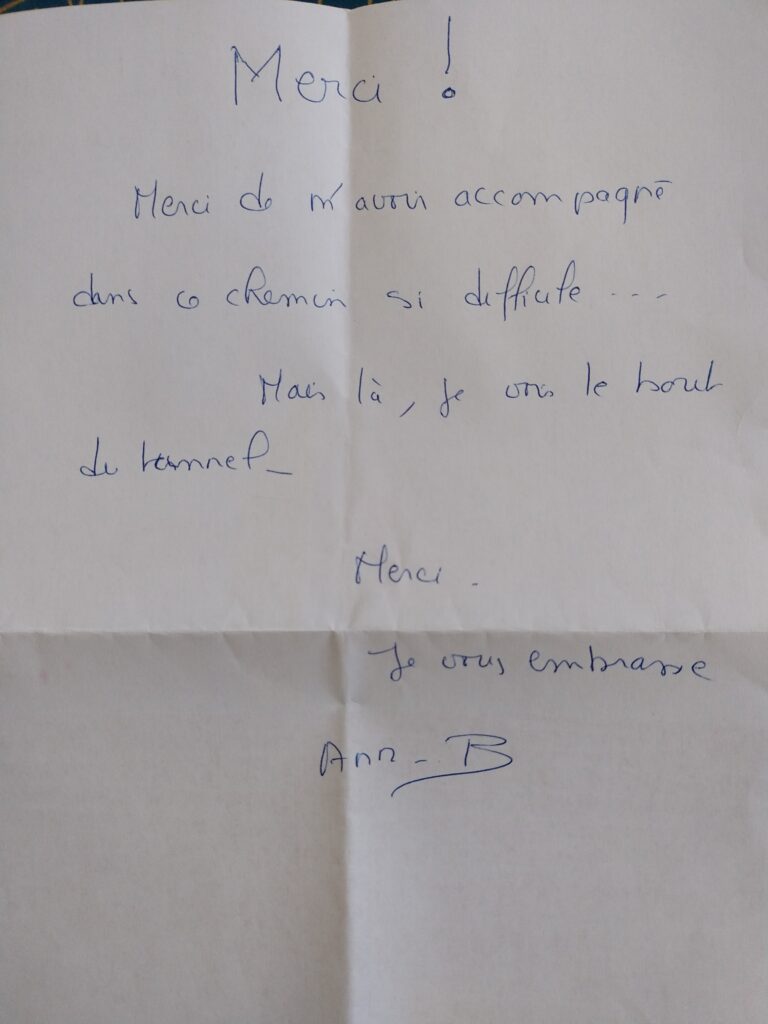 Merci !
Merci de m'avoir accompagné
dans ce chemin si difficile ...
Mais là, je vois le bout
du tunnel_
Merci .
Je vous embrasse
Ann - B